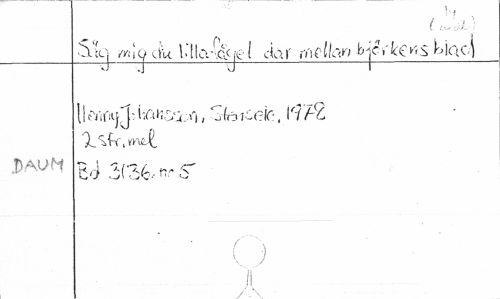 Säg mig du lilla fågel där mellan björkens blad
Henny Johansson, Stensele, 1972
2 str, mel
DAUM Bd 3136, nr 5